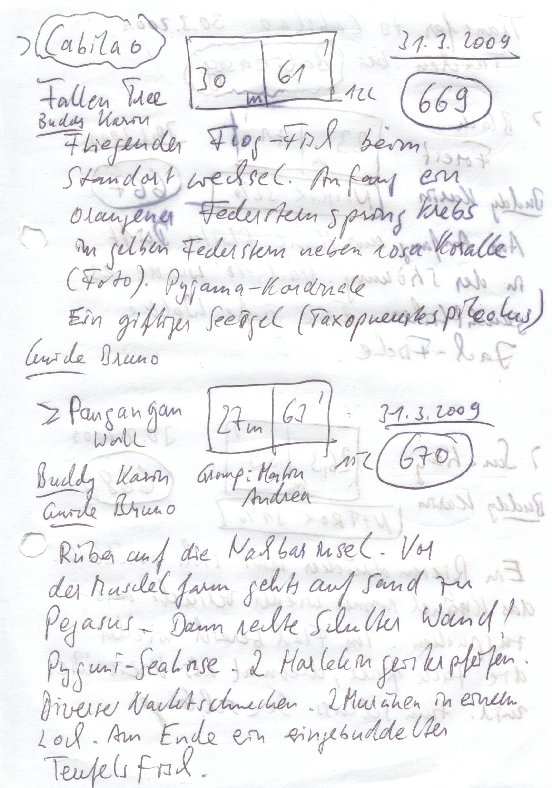 > Cabilao
30 m 61' 12L
31.3.2009
669
Fallen Tree
Buddy Karin
Fliegender Frog-Fisch beim
Standort wechsel. Anfang ein
orangener Federstern spring krebs
im gelben Federstern neben rosa Koralle
(Foto). Pyjama-Kardinale
Ein giftiger Seeigel (Toxopneustes pileolus)
Guide Bruno
> Pangangan
Wall
27m 63' 12L
31.3.2009
670
Buddy Karin Group: Martin
Andrea
Guide Bruno
Rüber auf die Nachbarinsel. Vor
der Muschel farm gehts auf Sand zu
Pegasus - Dann rechte Schulter Wand!
Pygmi-Seahorse. 2 Harlekin
Diverse Nachtschnecken. 2 Muränen in einem
Loch. Am Ende ein eingebuddelter
Teufels Fisch.